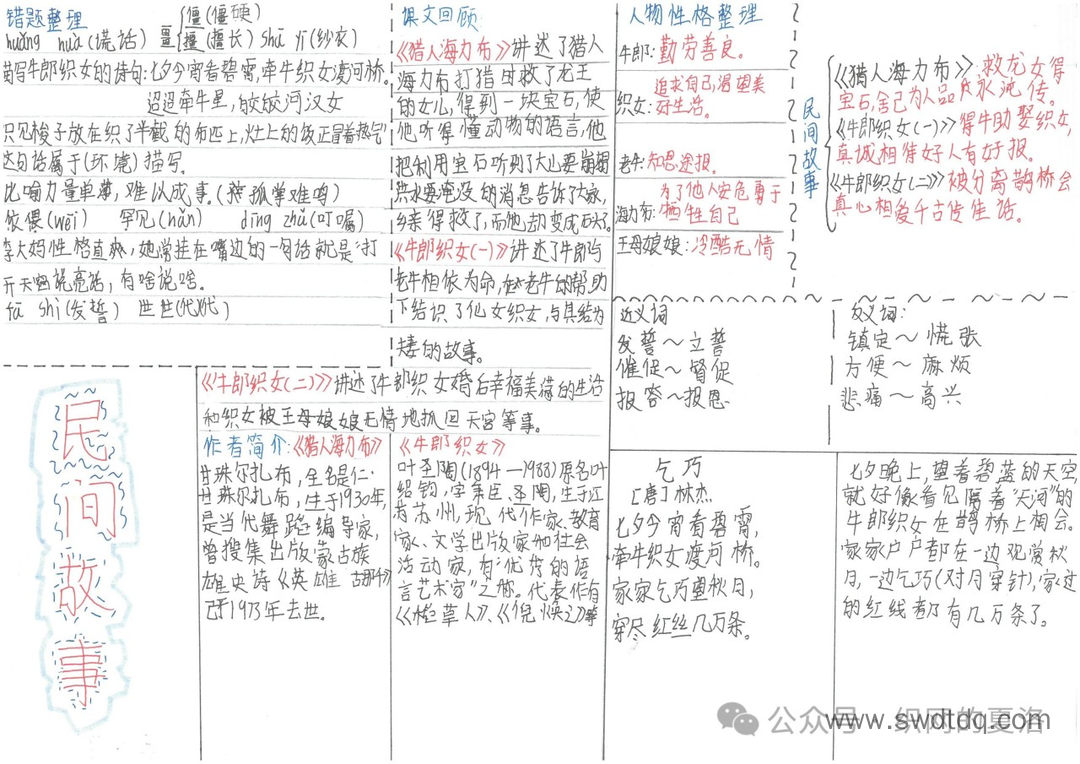 错题整理
huǎng huà(谎话) 畺{僵(僵硬)
擅(擅长) shā yī(纱衣)
描写牛郎织女的诗句:七夕今宵看碧霄,牵牛织女渡河桥。
迢迢牵牛星,皎皎河汉女
只见梭子放在织了半截的布匹上,灶上的饭正冒着热气
这句话属于(环境)描写。
比喻力量单薄,难以成事。(孤掌难鸣)
依偎(wēi) 罕见(hǎn) dīng zhǔ(叮嘱)
李大妈性格直爽,她常挂在嘴边的一句话就是:打
开天窗说亮话,有啥说啥。
fā shì(发誓) 世世(代代)
课文回顾
《猎人海力布》讲述了猎人
海力布打猎时救了龙王
的女儿,得到一块宝石,使
他听得懂动物的语言,他
把利用宝石听到了大山要崩塌
洪水要淹没的消息告诉了大家,
乡亲得救了,而他却变成石头了。
《牛郎织女(一)》讲述了牛郎与
老牛相依为命,在老牛的帮助
下结识了仙女织女,与其结为
妻的故事。
《牛郎织女(二)》讲述了牛郎织女婚后幸福美满的生活
和织女被王母娘娘无情地抓回天宫等事。
人物性格整理
牛郎:勤劳善良。
追求自己,渴望美
织女:好生活。
老牛:知恩图报。
为了他人安危勇于
海力布:牺牲自己
王母娘娘:冷酷无情
民间故事
《猎人海力布》:救龙女得
宝石,舍己为人品质永流传。
《牛郎织女(一)》得牛助娶织女,
真诚相待好人有好报。
《牛郎织女(二)》被分离鹊桥会
真心相爱千古传佳话。
近义词
发誓～立誓
催促～督促
报答～报恩
反义词:
镇定～慌张
方便～麻烦
悲痛～高兴
民间故事
作者简介:《猎人海力布》
甘珠尔扎布,全名是仁·
甘珠尔扎布,生于1930年,
是当代舞蹈编导家,
曾搜集出版蒙古族
雄史诗《英雄古那干》
已于1973年去世。
《牛郎织女》
叶圣陶(1894—1988)原名叶
绍钧,字秉臣、圣陶,生于江
苏苏州,现代作家、教育
家、文学出版家和社会
活动家,有"优秀的语
言艺术家"之称。代表作有
《稻草人》、《倪焕之》等
乞巧
[唐]林杰
七夕今宵看碧霄,
牵牛织女渡河桥。
家家乞巧望秋月,
穿尽红丝几万条。
七夕晚上,望着碧蓝的天空,
就好像看见隔着"天河"的
牛郎织女在鹊桥上相会。
家家户户都在一边观赏秋
月,一边乞巧(对月穿针),穿过
的红线都有几万条了。
公众号·织网的夏洛
www.swdtdq.com